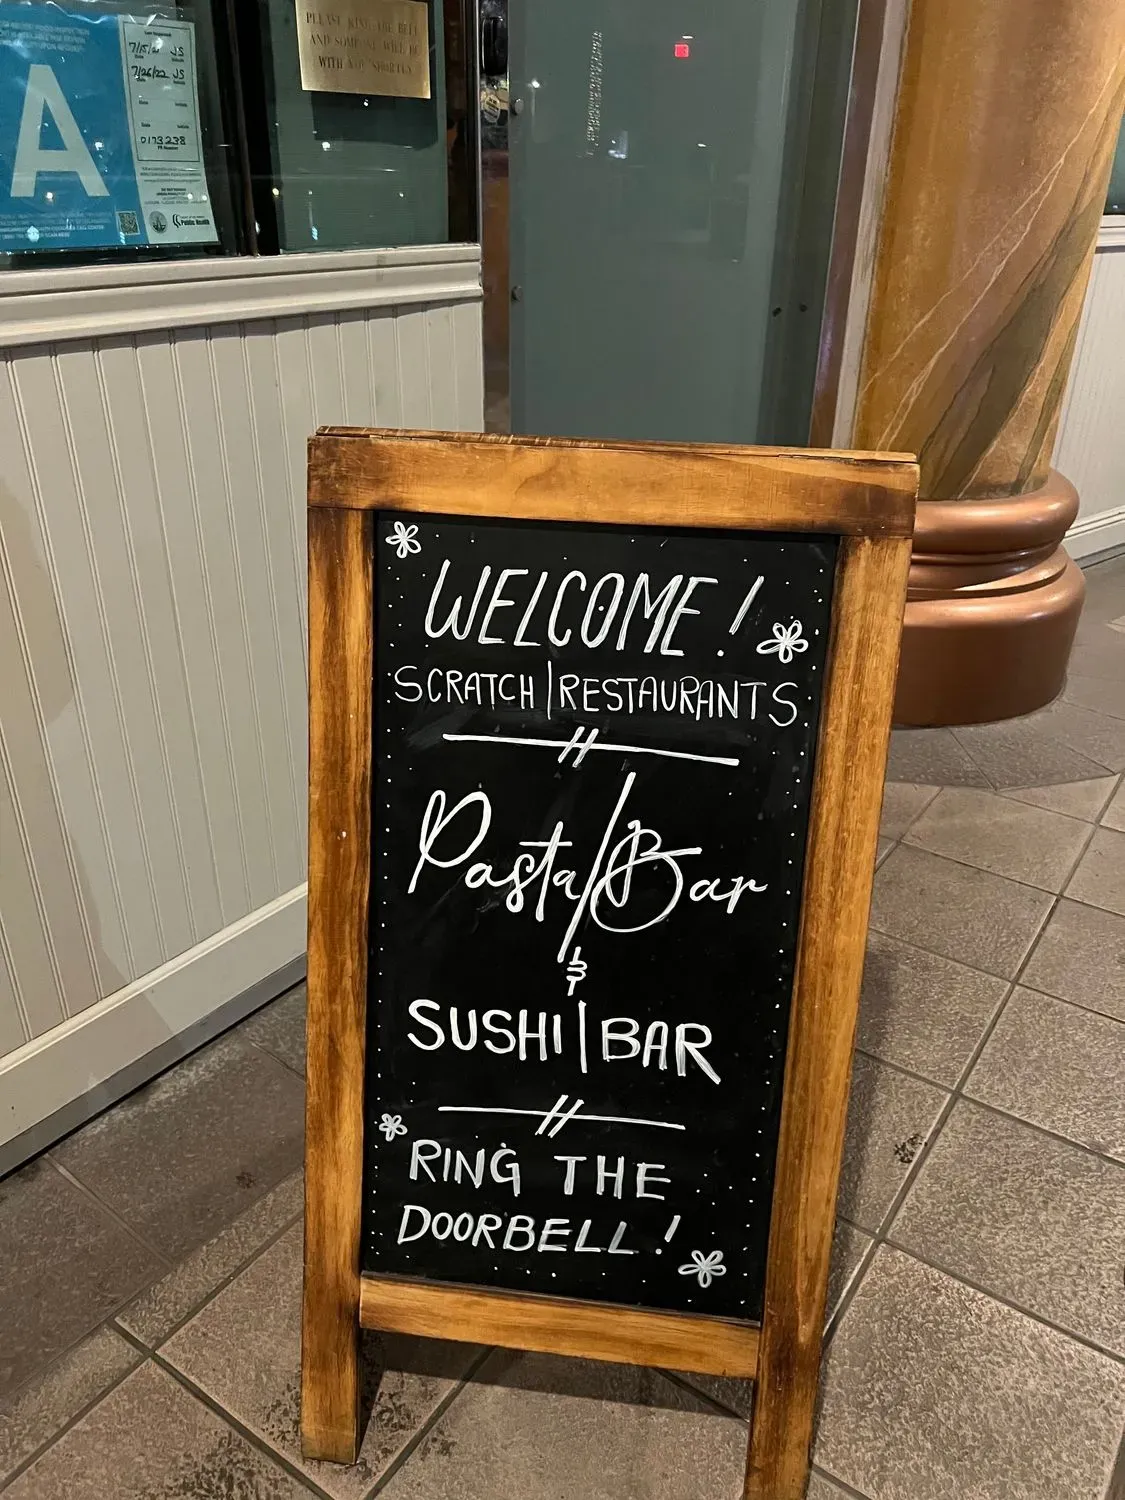 A
7/15/21 JS
7/26/22 JS
0173238
Public Health
PLEASE RING THE BELL
AND SOMEONE WILL BE
WITH YOU SHORTLY
WELCOME!
SCRATCH|RESTAURANTS
Pasta/Bar
&
SUSHI|BAR
RING THE
DOORBELL!